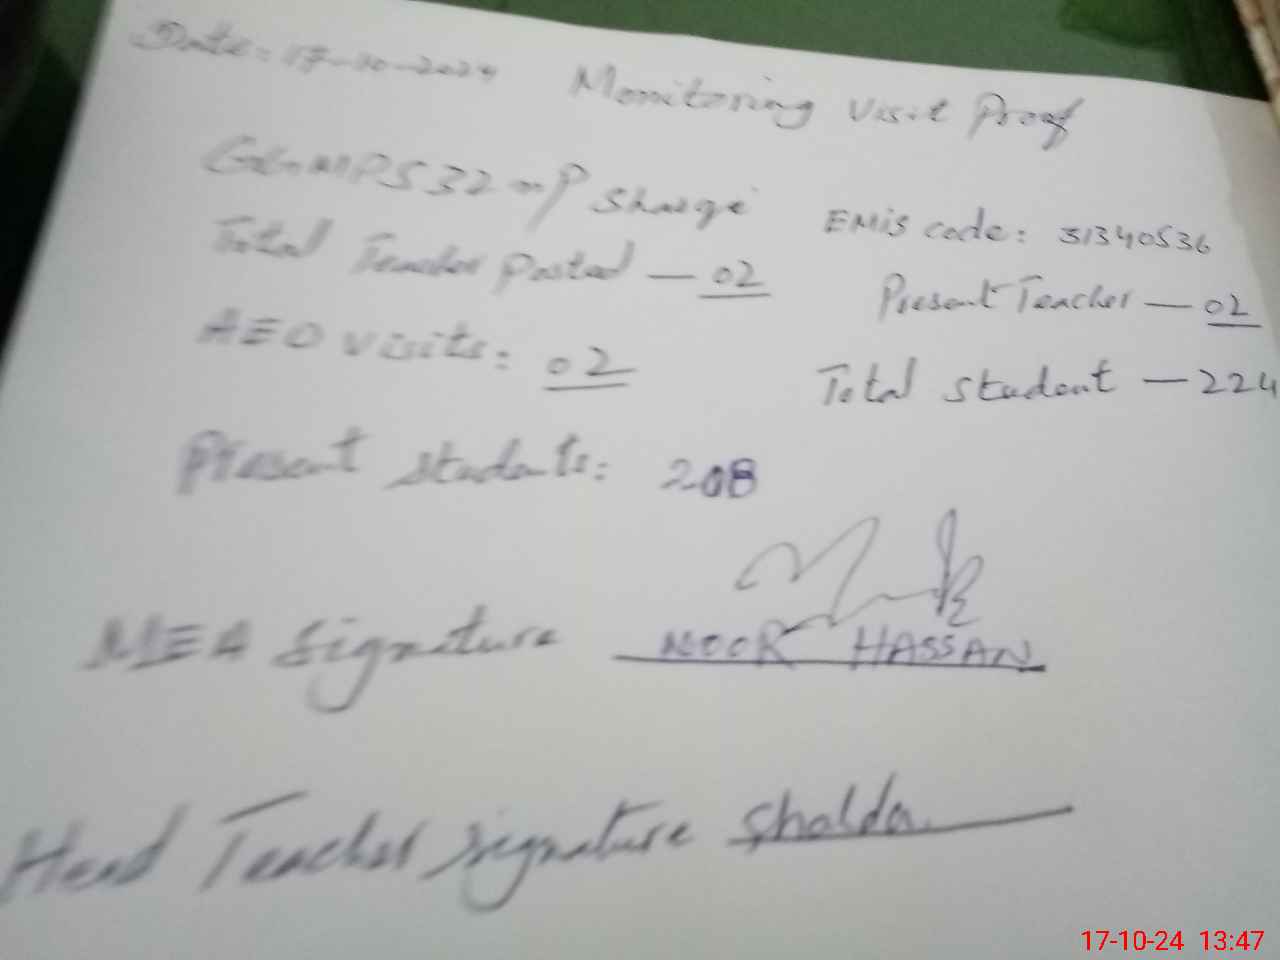 Date: 17-10-2024 Monitoring Visit Proof
GGMPS 32 P Sharqi EMIS code: 31340536
Total Teacher Posted — 02 Present Teacher — 02
AEO visits: 02 Total Student — 224
Present students: 208
MEA Signature NOOR HASSAN
Head Teacher Signature
17-10-24 13:47